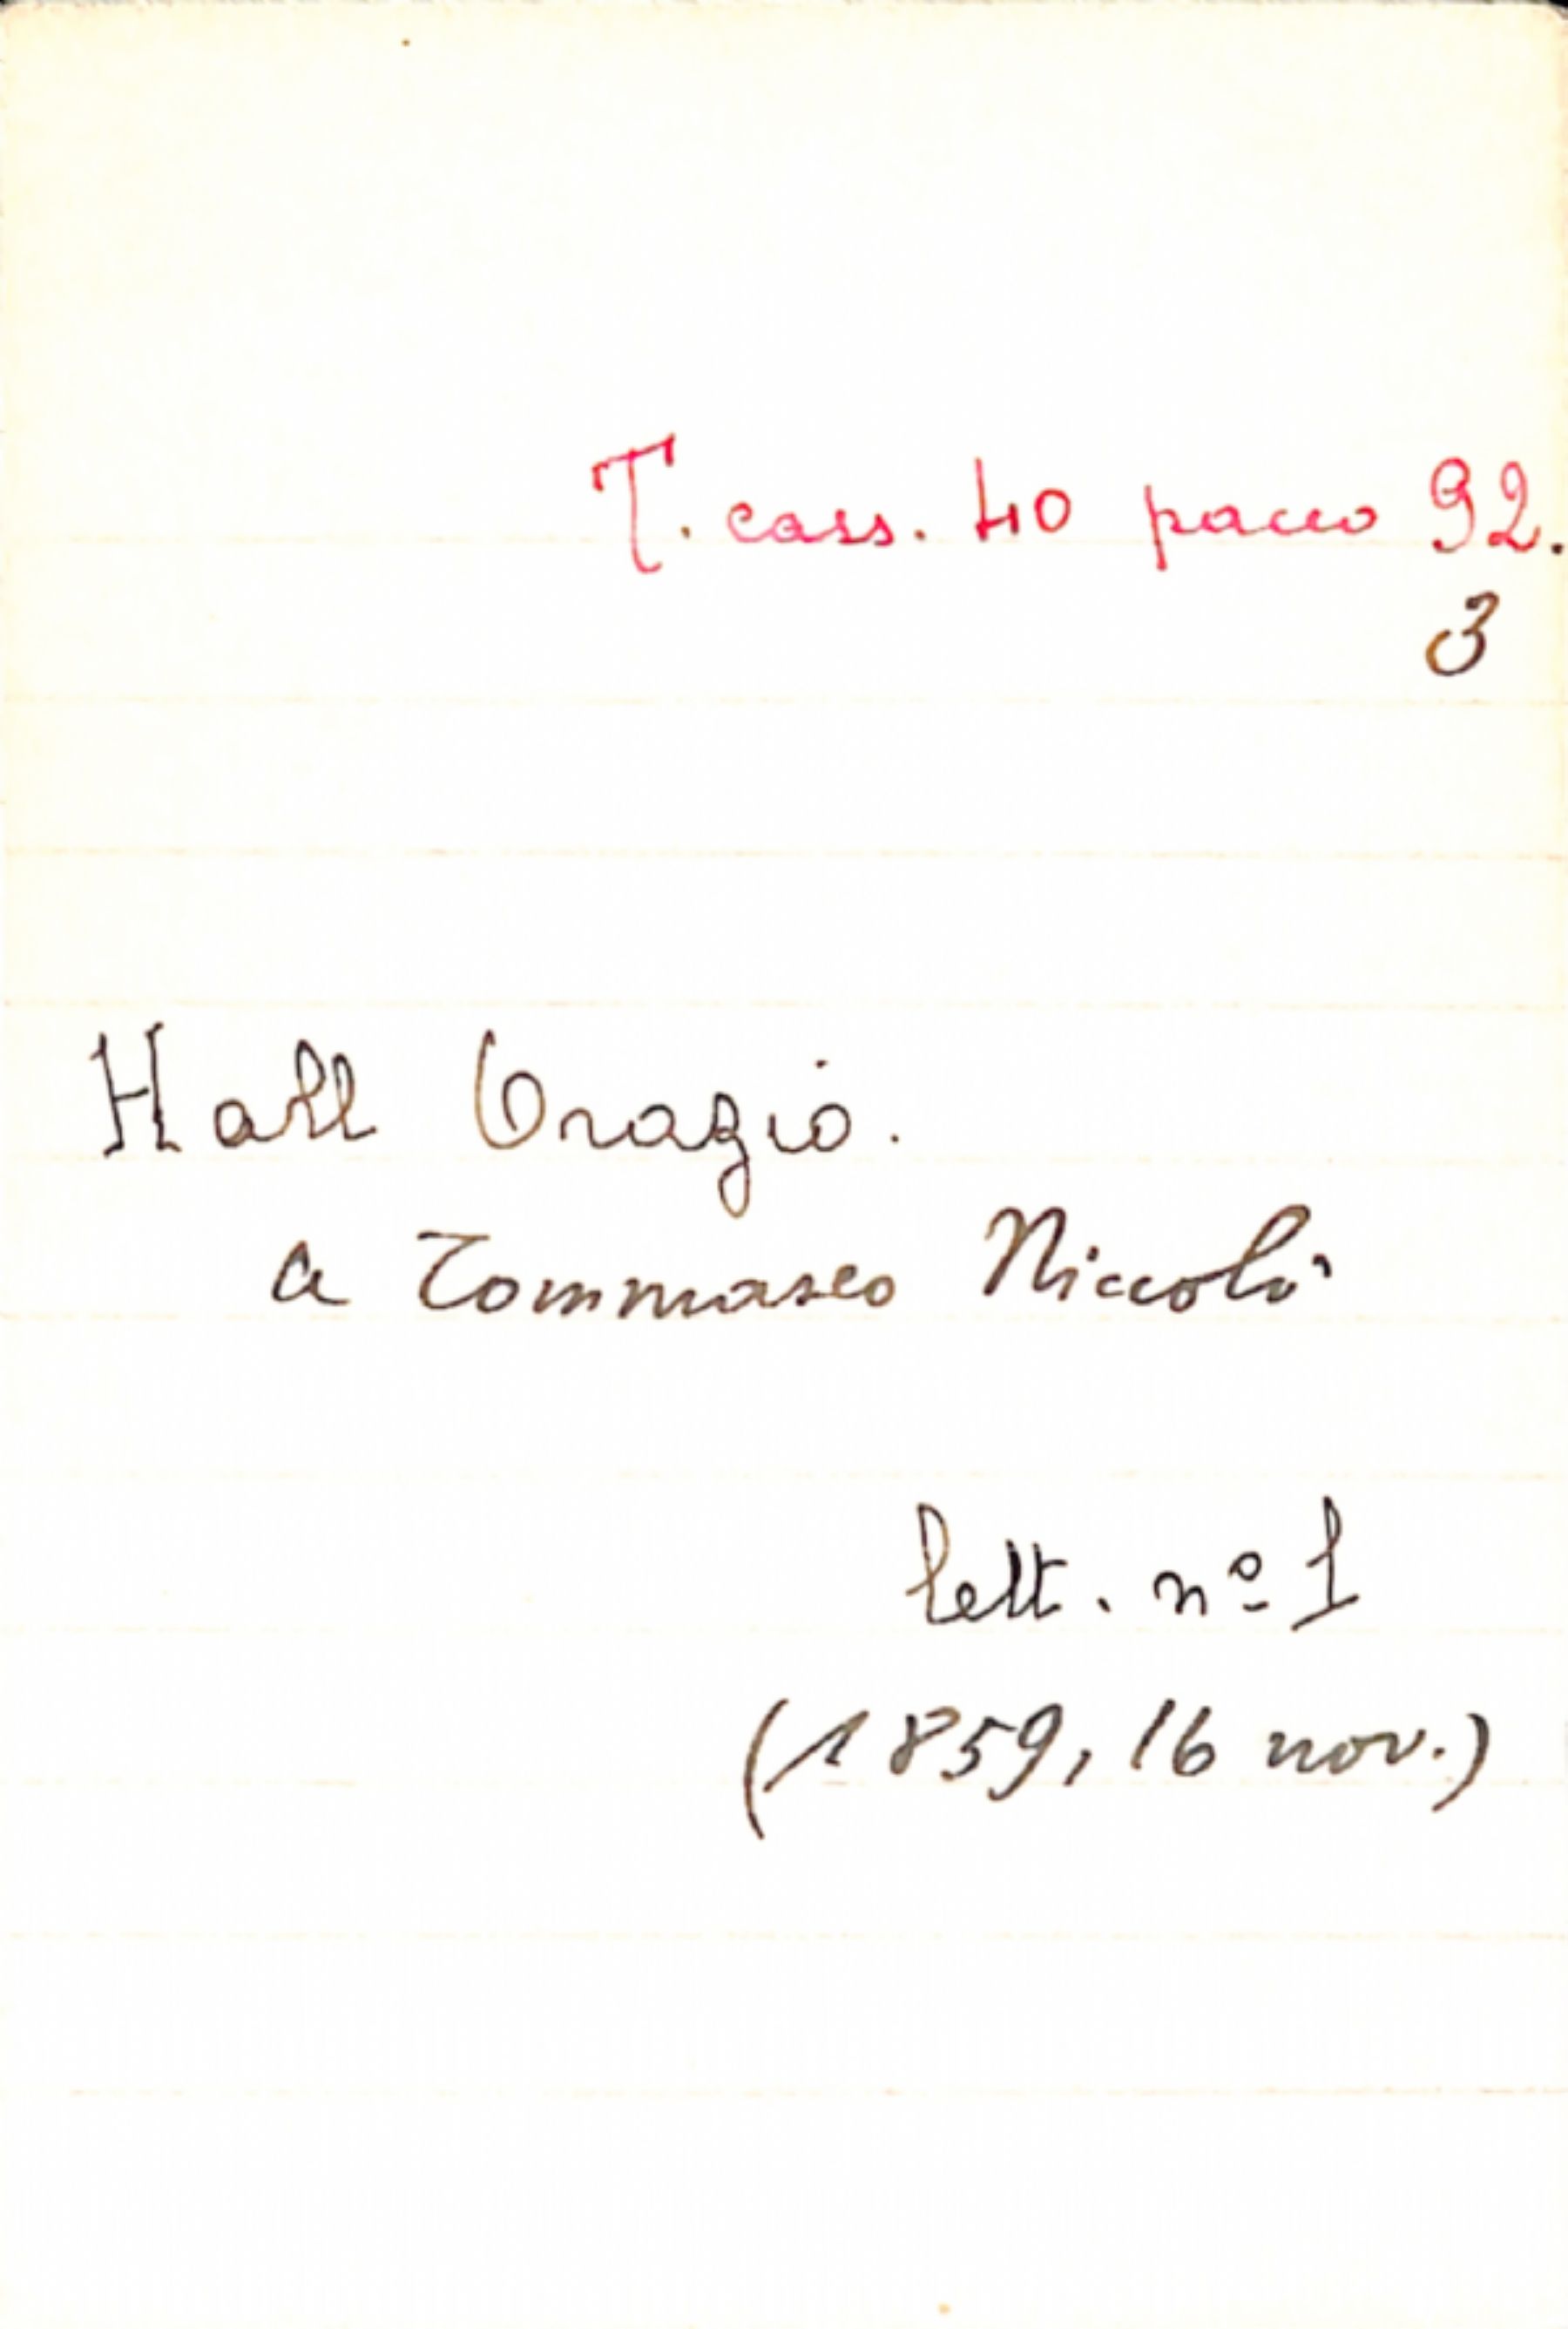 T. cass. 40 pacco 92.
3
Hall Orazio.
a Tommaseo Niccolò
lett. nº 1
(1859, 16 nov.)